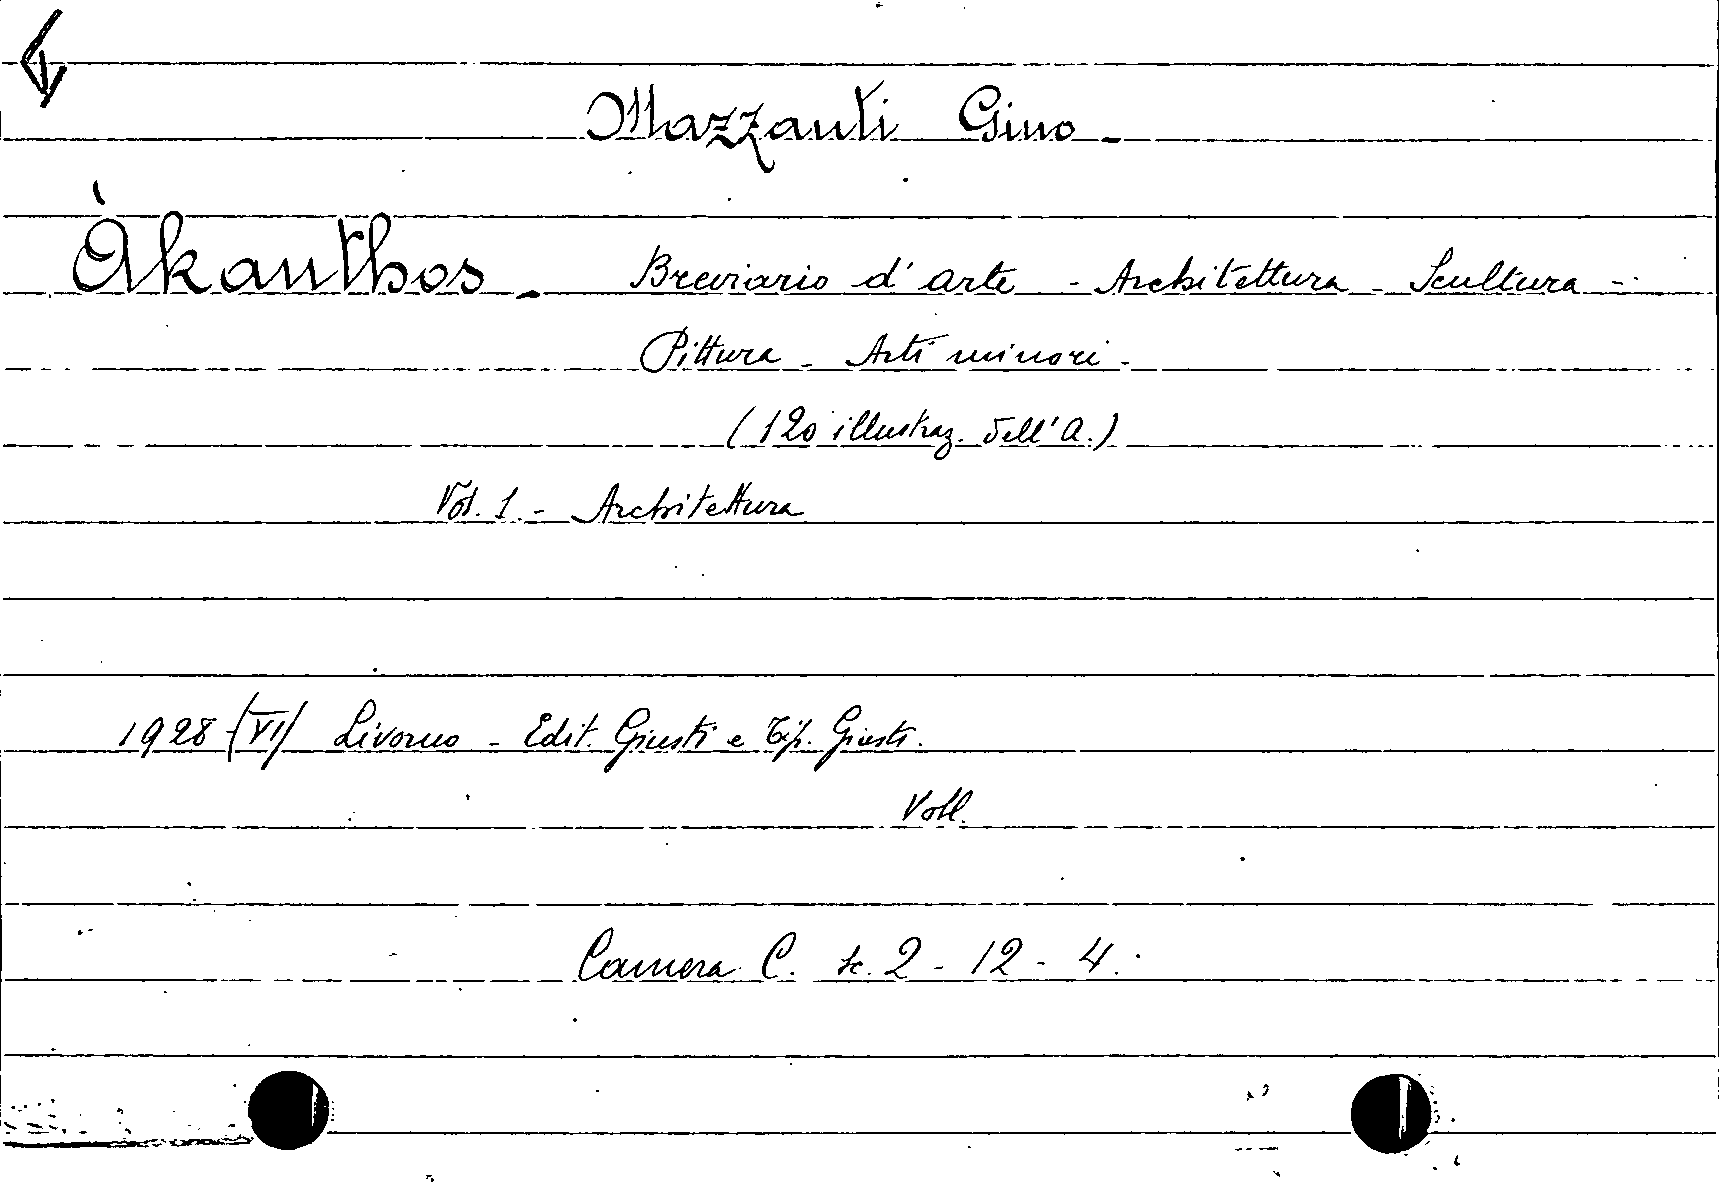 Mazzanti Gino -
Àkanthos - Breviario d'arte - Architettura - Scultura -
Pittura - Arti minori -
(120 illustraz. dell'A.)
Vol. 1. - Architettura
1928 (VI) Livorno - Edit. Giusti e Tip. Giusti.
Voll.
Camera C. sc. 2 - 12 - 4.